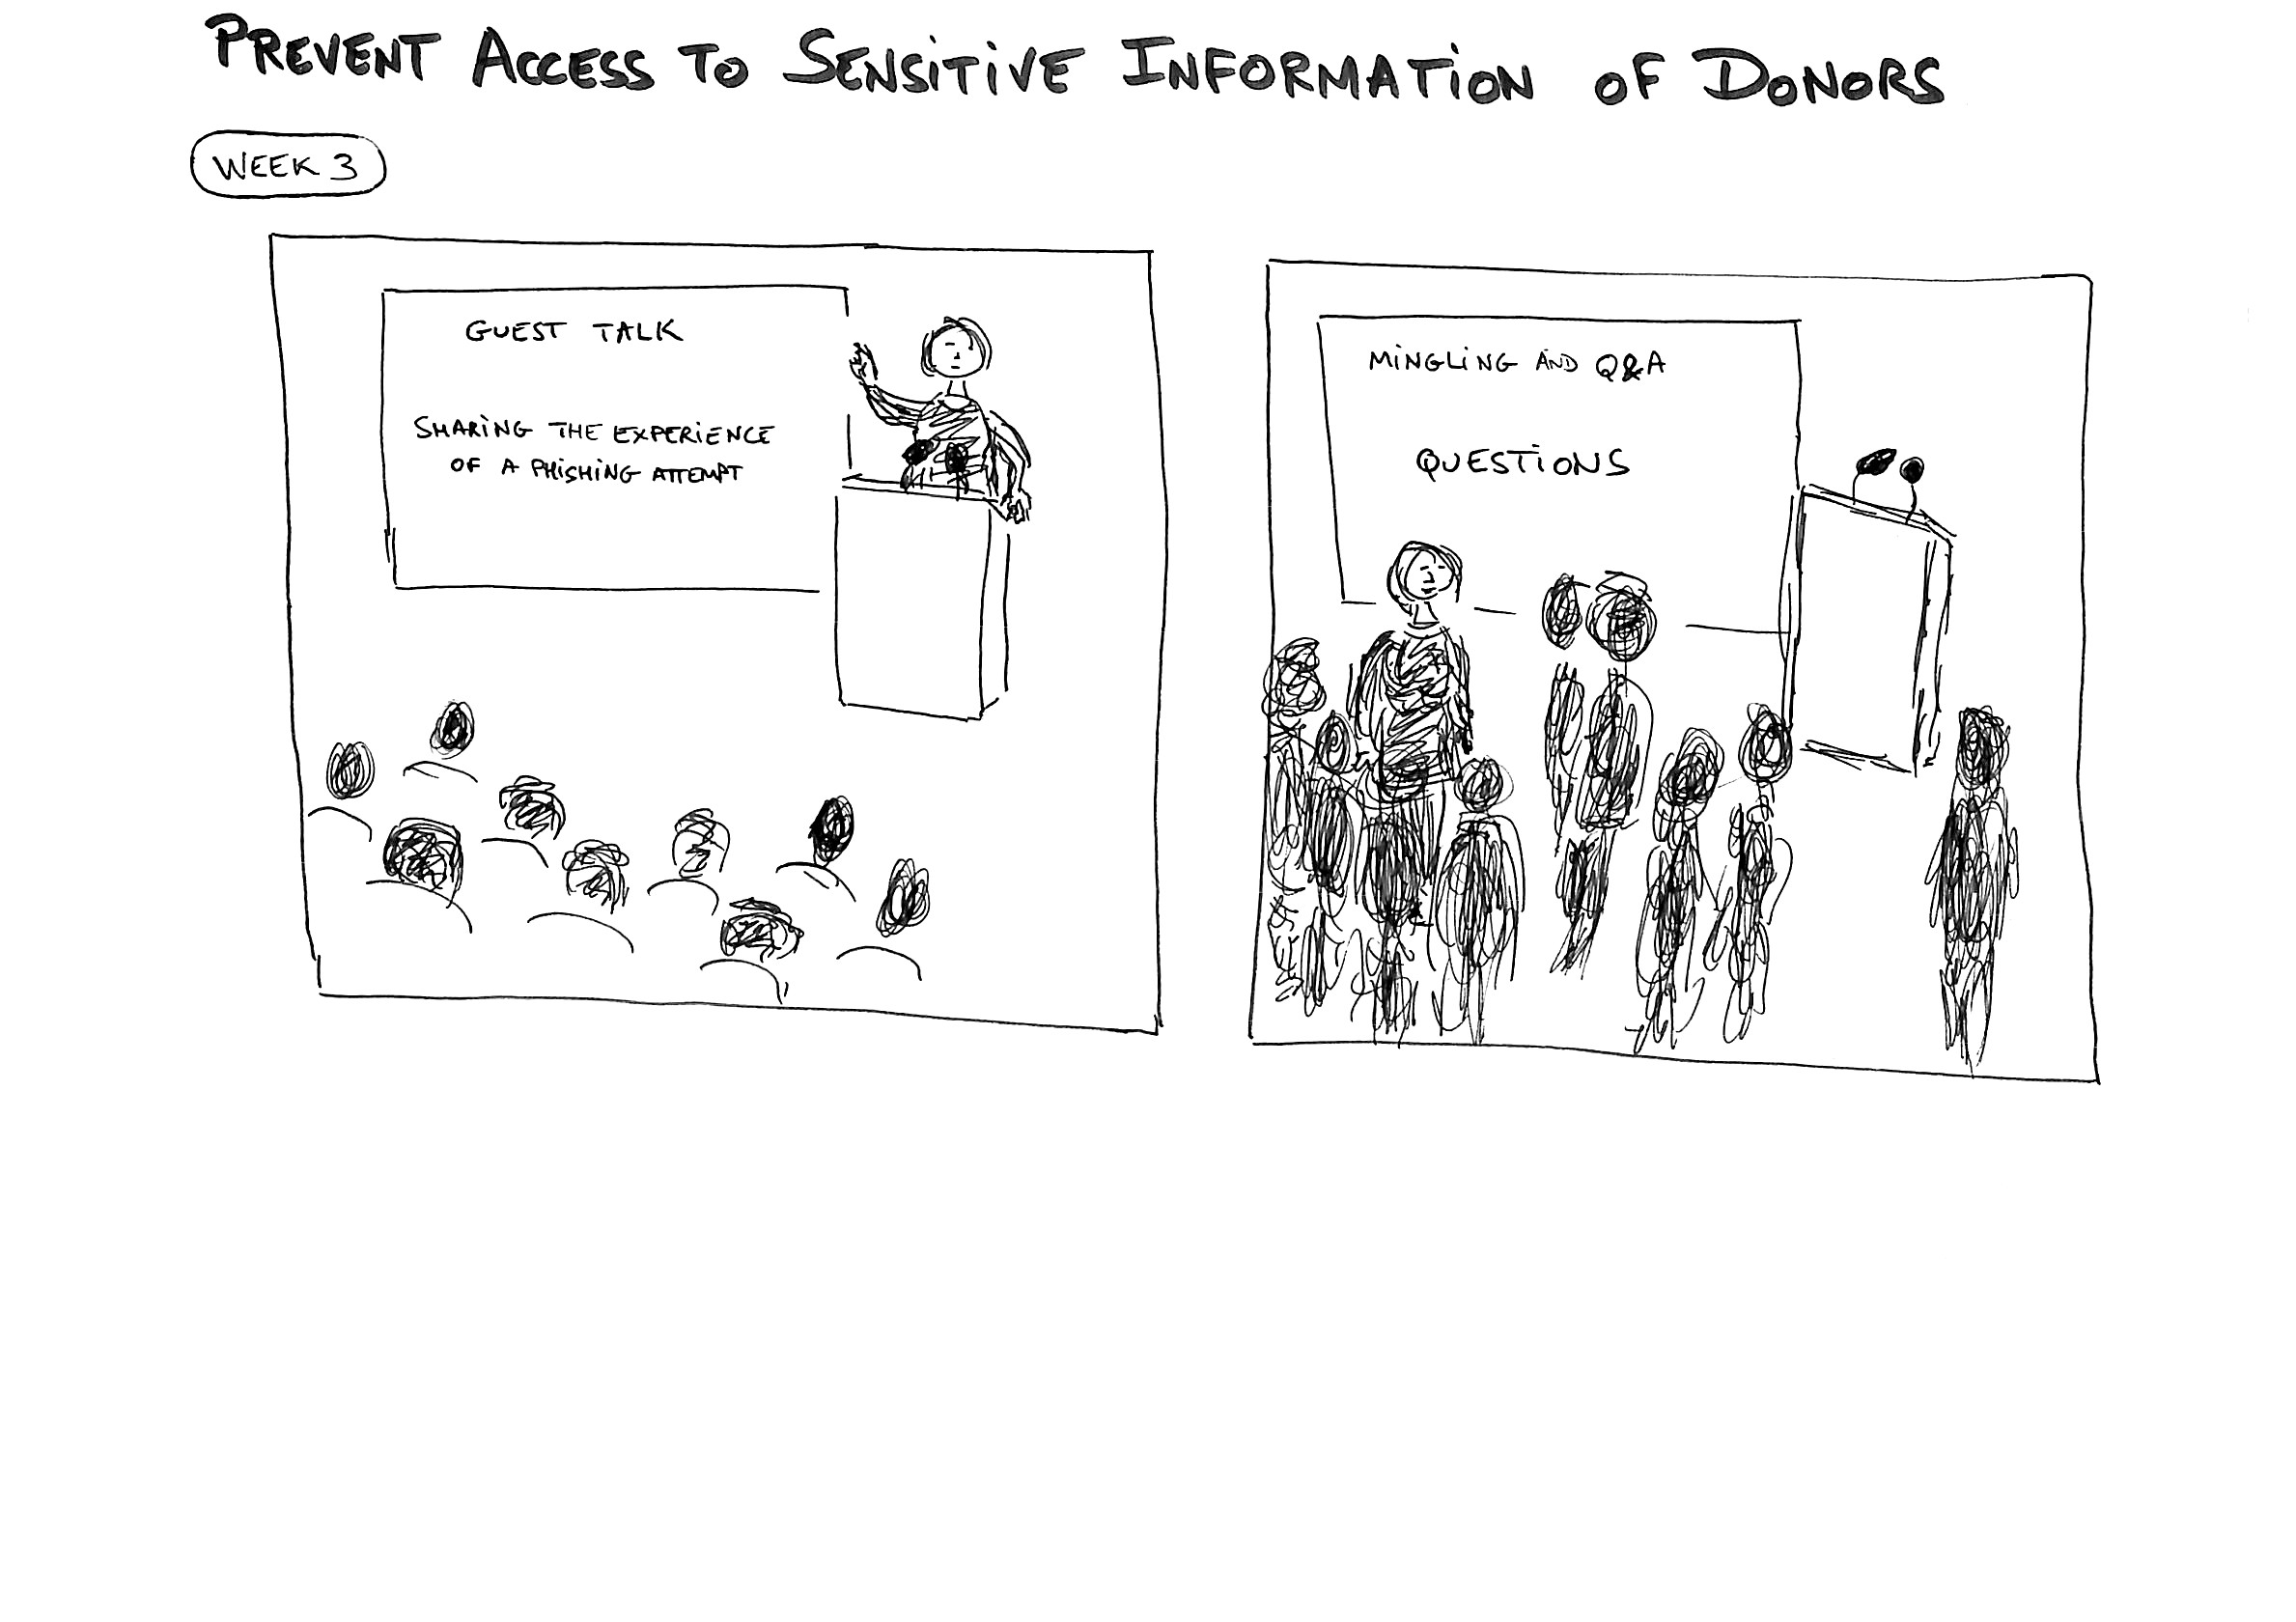 PREVENT ACCESS TO SENSITIVE INFORMATION OF DONORS
WEEK 3
GUEST TALK
SHARING THE EXPERIENCE
OF A PHISHING ATTEMPT
MINGLING AND Q&A
QUESTIONS